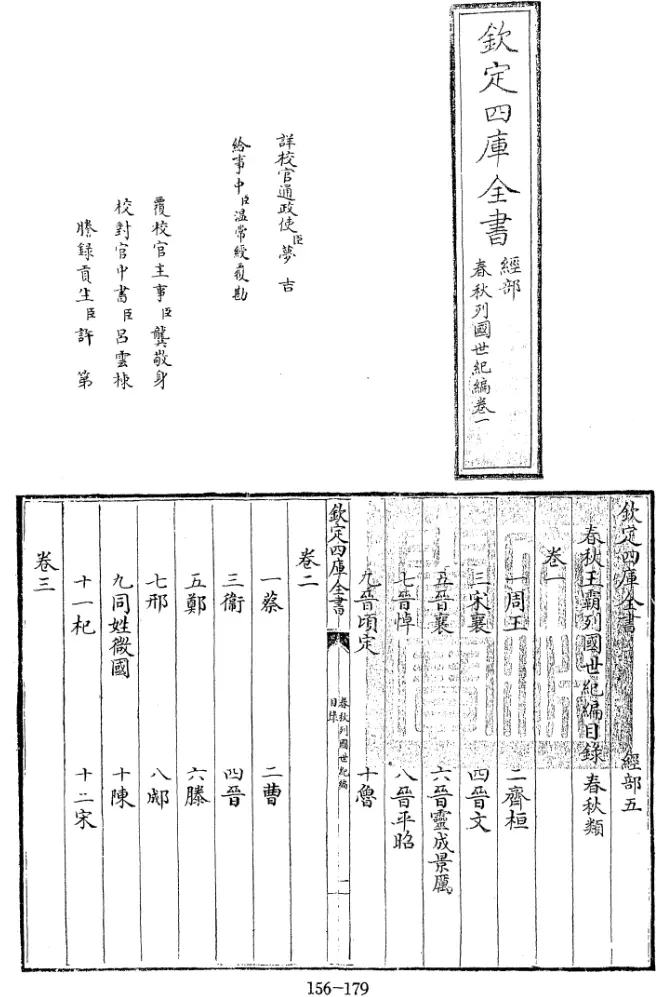 欽定四庫全書
經部
春秋列國世紀編卷一
詳校官通政使臣夢吉
給事中臣溫常綬覆勘
覆校官主事臣龔敬身
校對官中書臣呂雲棟
謄錄貢生臣許第
欽定四庫全書 經部五
春秋王霸列國世紀編目錄 春秋類
卷一
一周王 二齊桓
三宋襄 四晉文
五晉襄 六晉靈成景厲
七晉悼 八晉平昭
九晉頃定 十魯
欽定四庫全書
春秋列國世紀編
目錄
一
卷二
一蔡 二曹
三衞 四晉
五鄭 六滕
七邢 八郕
九同姓微國 十陳
十一杞 十二宋
卷三
156-179